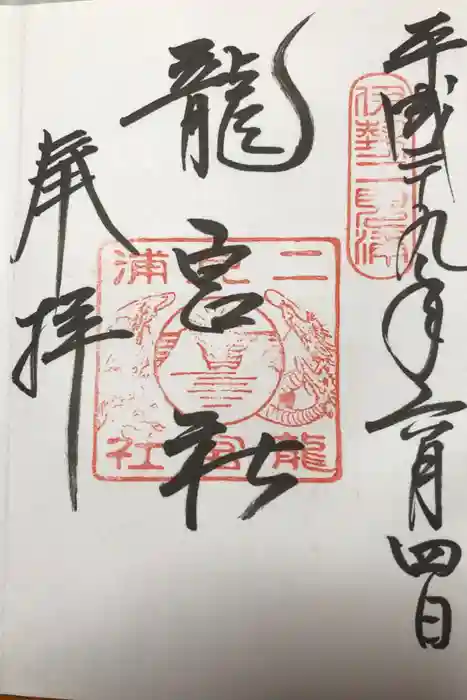 平成二十九年六月四日
伊勢二見浦
龍宮社
二見浦
龍宮社
奉拝